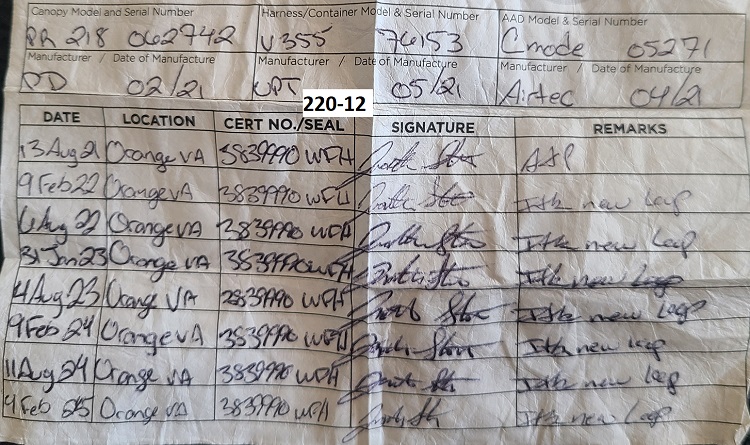 Canopy Model and Serial Number Harness/Container Model & Serial Number AAD Model & Serial Number
PR 218 062742 V355 76153 Cmode 05271
Manufacturer / Date of Manufacture Manufacturer / Date of Manufacture Manufacturer / Date of Manufacture
PD 02/21 UPT 05/21 Airtec 04/21
220-12
DATE LOCATION CERT NO./SEAL SIGNATURE REMARKS
13 Aug 21 Orange VA 3839990 WFH A&P
9 Feb 22 Orange VA 3839990 WFH I&R new loop
6 Aug 22 Orange VA 3839990 WFH I&R new loop
31 Jan 23 Orange VA 3839990 WFH I&R new loop
4 Aug 23 Orange VA 3839990 WFH I&R new loop
9 Feb 24 Orange VA 3839990 WFH I&R new loop
11 Aug 24 Orange VA 3839990 WFH I&R new loop
4 Feb 25 Orange VA 3839990 WFH I&R new loop